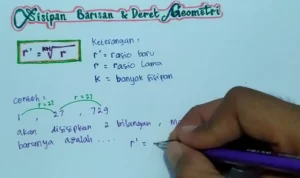 Sisipan Barisan & Deret Geometri
r' = ᵏ⁺¹√r
Keterangan :
r' = rasio baru
r = rasio Lama
k = banyak sisipan
contoh :
r = 27 r = 27
1 , 27 , 729
akan disisipkan 2 bilangan ,
barunya adalah ....
r' =